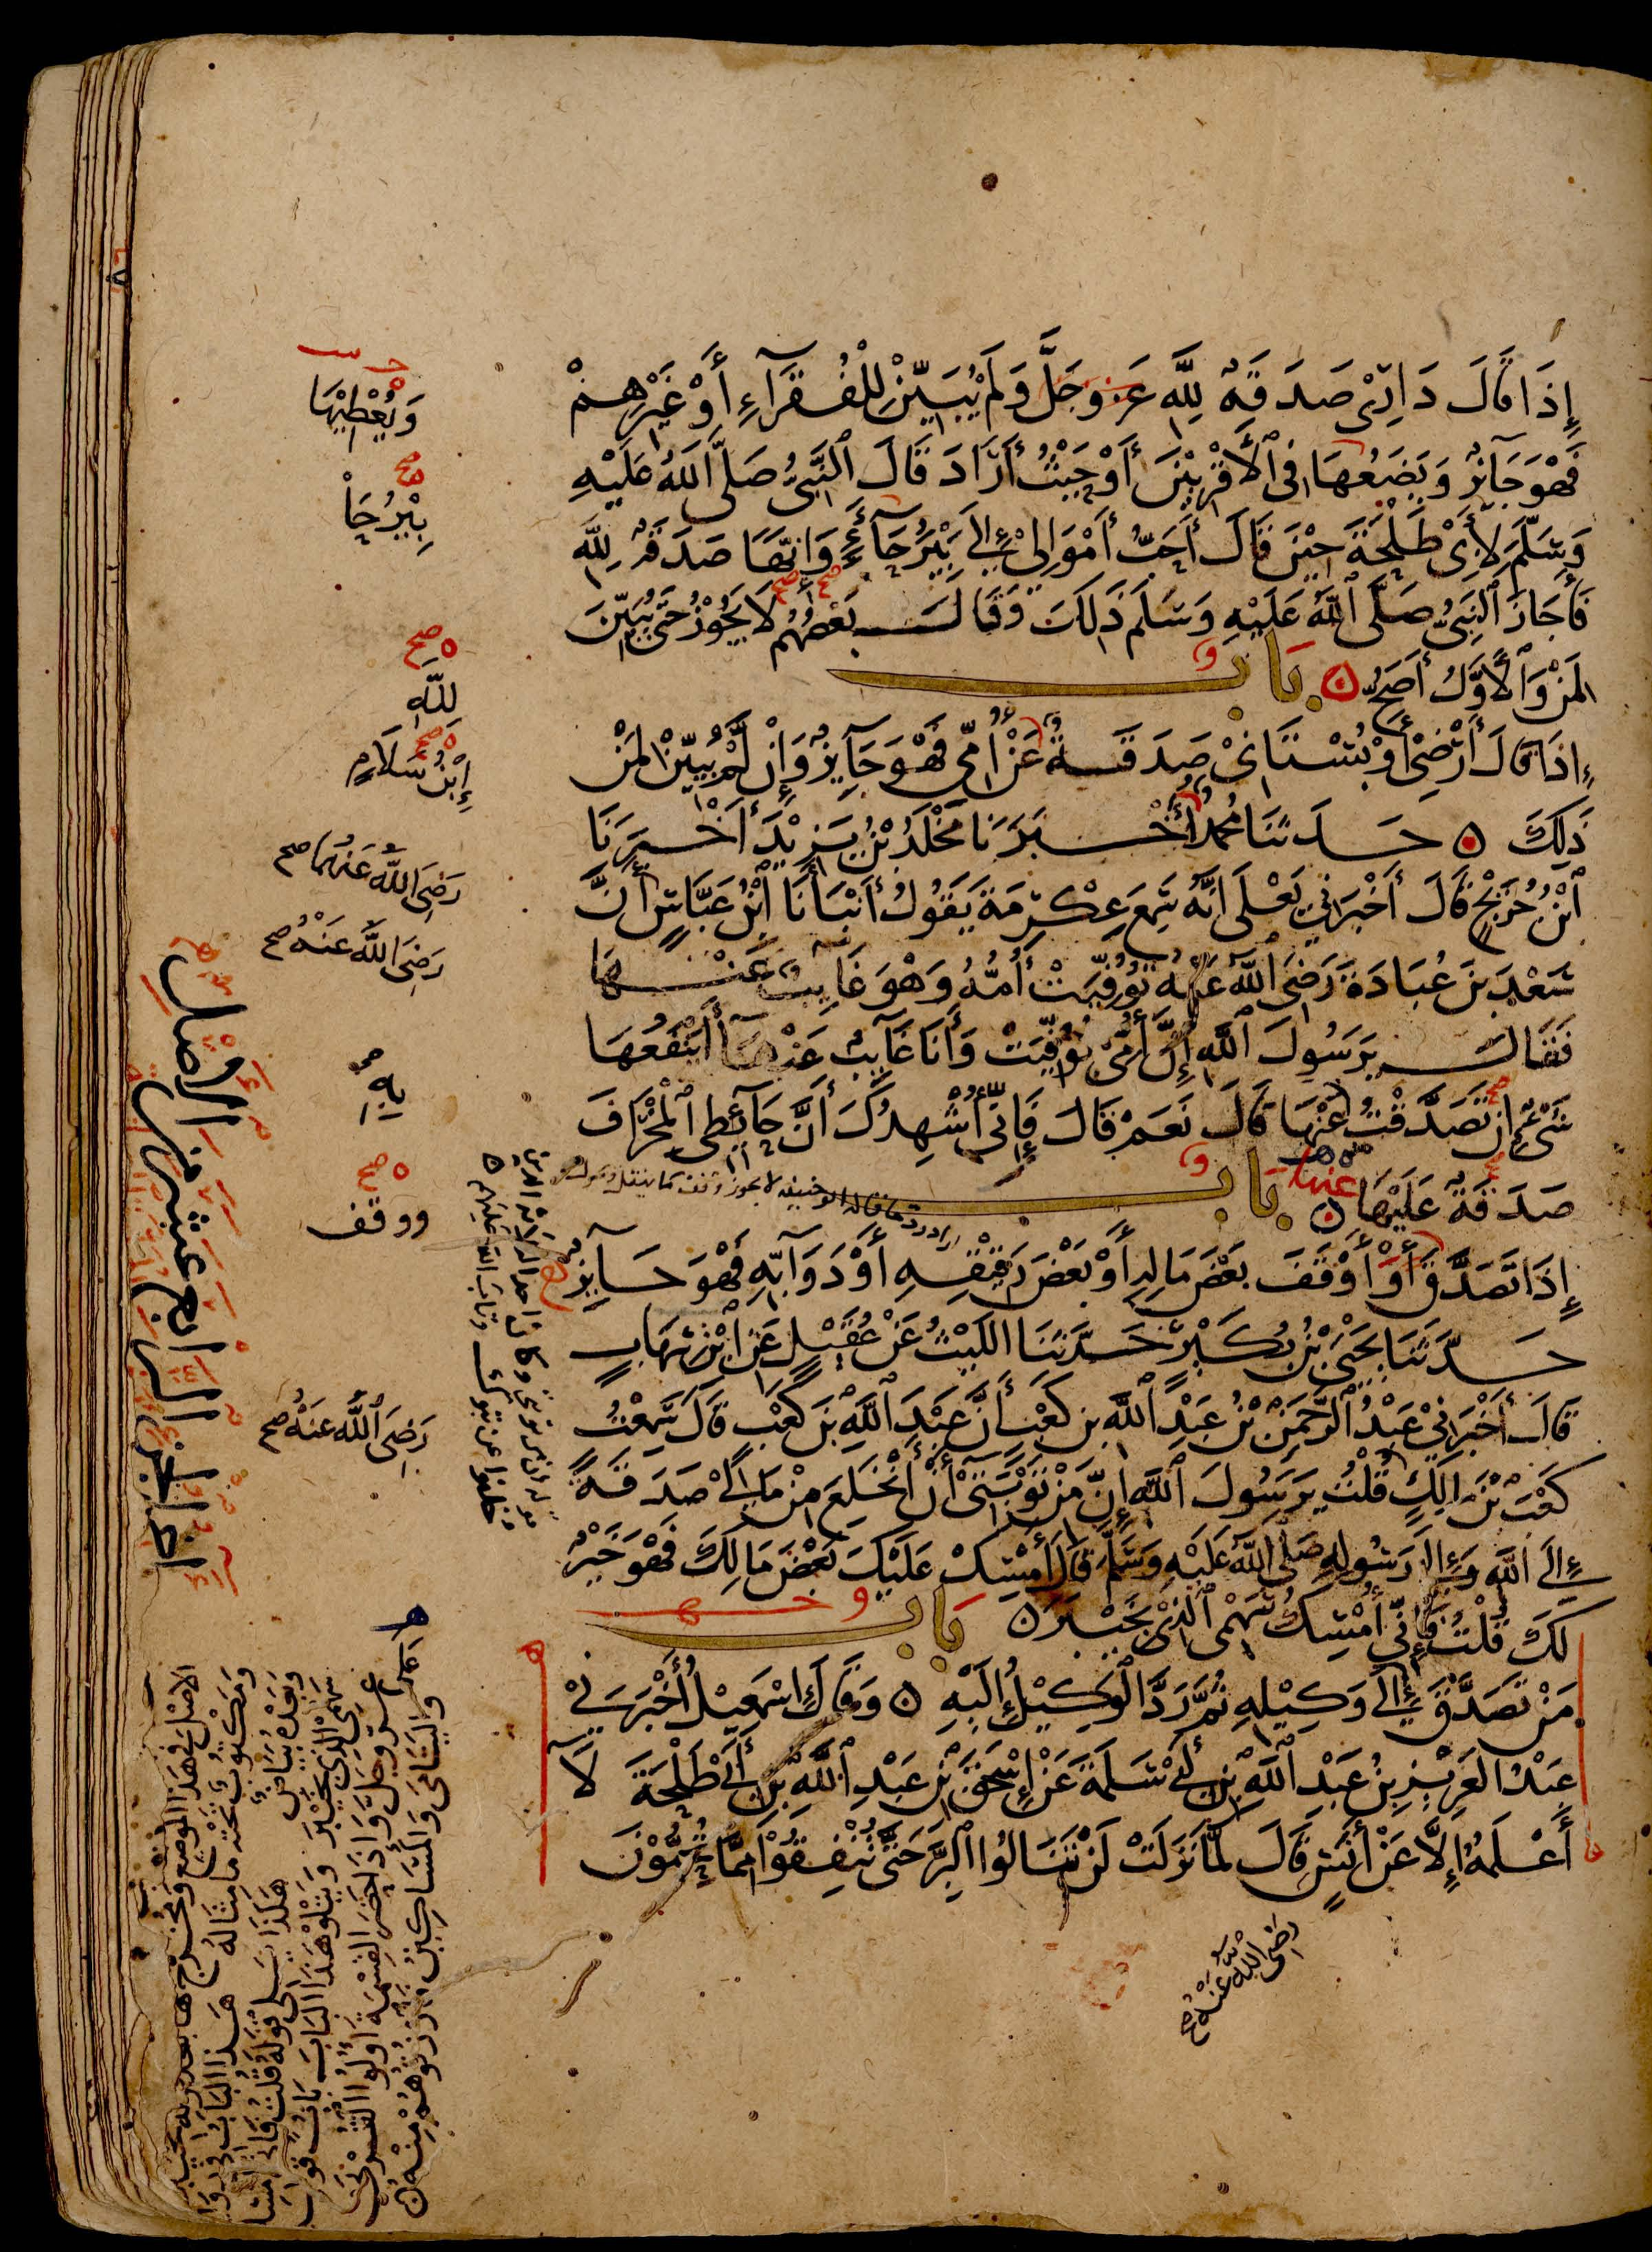 إِذَا قَالَ دَارِيْ صَدَقَةٌ لِلَّهِ عَزَّ وَجَلَّ وَلَمْ يُبَيِّنْ لِلْفُقَرَآءِ أَوْ غَيْرِهِمْ
فَهْوَ جَآئِزٌ وَيَضَعُهَا فِي ٱلْأَقْرَبِيْنَ أَوْ حَيْثُ أَرَادَ قَالَ ٱلنَّبِيُّ صَلَّى اللَّهُ عَلَيْهِ
وَسَلَّمَ لِأَبِيْ طَلْحَةَ حِيْنَ قَالَ أَحَبُّ أَمْوَالِيْ إِلَيَّ بَيْرُحَآءَ وَإِنَّهَا صَدَقَةٌ لِلَّهِ
فَأَجَازَ ٱلنَّبِيُّ صَلَّى ٱللَّهُ عَلَيْهِ وَسَلَّمَ ذَلِكَ وَقَالَ بَعْضُهُمْ لَا يَجُوْزُ حَتَّى يُبَيِّنَ
لِمَنْ وَٱلْأَوَّلُ أَصَحُّ بَابٌ
إِذَا قَالَ أَرْضِيْ أَوْ بُسْتَانِيْ صَدَقَةٌ عَنْ أُمِّي فَهْوَ جَآئِزٌ وَإِنْ لَّمْ يُبَيِّنْ لِمَنْ
ذَلِكَ حَدَّثَنَا مُحَمَّدٌ أَخْبَرَنَا مَخْلَدُ بْنُ يَزِيْدَ أَخْبَرَنَا
ٱبْنُ جُرَيْجٍ قَالَ أَخْبَرَنِي يَعْلَى أَنَّهُ سَمِعَ عِكْرِمَةَ يَقُوْلُ أَنْبَأَنَا ابْنُ عَبَّاسٍ أَنَّ
سَعْدَ بْنَ عُبَادَةَ رَضِيَ ٱللَّهُ عَنْهُ تُوُفِّيَتْ أُمُّهُ وَهْوَ غَائِبٌ عَنْهَا
فَقَالَ يَرَسُولَ ٱللَّهِ إِنَّ أُمِّيْ تُوُفِّيَتْ وَأَنَا غَآئِبٌ عَنْهَآ أَيَنْفَعُهَا
شَيْءٌ إِنْ تَصَدَّقْتُ عَنْهَا قَالَ نَعَمْ قَالَ فَإِنِّيْ أُشْهِدُكَ أَنَّ حَآئِطِي ٱلْمِخْرَافَ
صَدَقَةٌ عَلَيْهَا عَنْهَا بَابٌ
إِذَا تَصَدَّقَ أَوْ أَوْقَفَ بَعْضَ مَالِهِ أَوْ بَعْضَ رَقِيْقِهِ أَوْ دَوَآبِّهِ فَهْوَ جَائِزٌ
حَدَّثَنَا يَحْيَى بْنُ بُكَيْرٍ حَدَّثَنَا اللَّيْثُ عَنْ عُقَيْلٍ عَنِ ابْنِ شِهَابٍ
قَالَ أَخْبَرَنِيْ عَبْدُ ٱلرَّحْمَنِ بْنُ عَبْدِ ٱللَّهِ بْنِ كَعْبٍ أَنَّ عَبْدَ ٱللَّهِ بْنَ كَعْبٍ قَالَ سَمِعْتُ
كَعْبَ بْنَ مَالِكٍ قُلْتُ يَرَسُولَ ٱللَّهِ إِنَّ مِنْ تَوْبَتِيْ أَنْ أَنْخَلِعَ مِنْ مَالِيْ صَدَقَةً
إِلَى اللَّهِ وَإِلَى رَسُولِهِ صَلَّى اللَّهُ عَلَيْهِ وَسَلَّمَ قَالَ أَمْسِكْ عَلَيْكَ بَعْضَ مَالِكَ فَهْوَ خَيْرٌ
لَكَ قُلْتُ فَإِنِّي أُمْسِكُ سَهْمِي ٱلَّذِيْ بِخَيْبَرَ بَابٌ
مَنْ تَصَدَّقَ إِلَى وَكِيْلِهِ ثُمَّ رَدَّ ٱلْوَكِيْلُ إِلَيْهِ وَقَالَ إِسْمَعِيْلُ أَخْبَرَنِيْ
عَبْدُ الْعَزِيْزِ بْنُ عَبْدِ ٱللَّهِ بْنِ أَبِيْ سَلَمَةَ عَنْ إِسْحَقَ بْنِ عَبْدِ ٱللَّهِ بْنِ أَبِيْ طَلْحَةَ لَآ
أَعْلَمُهُ إِلَّا عَنْ أَنَسٍ قَالَ لَمَّا نَزَلَتْ لَنْ تَنَالُوا ٱلْبِرَّ حَتَّى تُنْفِقُوْا مِمَّا تُحِبُّوْنَ
رَضِيَ اللَّهُ عَنْهُ صح
وَيُعْطِيْهَا
بِيْرُحَا
صح
لِلَّهِ
إِبْنُ سَلَامٍ
رَضِيَ اللَّهُ عَنْهُمَا صح
رَضِيَ اللَّهُ عَنْهُ صح
بِهِ
صح
ووقف
رَضِيَ ٱللَّهُ عَنْهُ صح
اخر الجزء الرابع عشر من الاصل